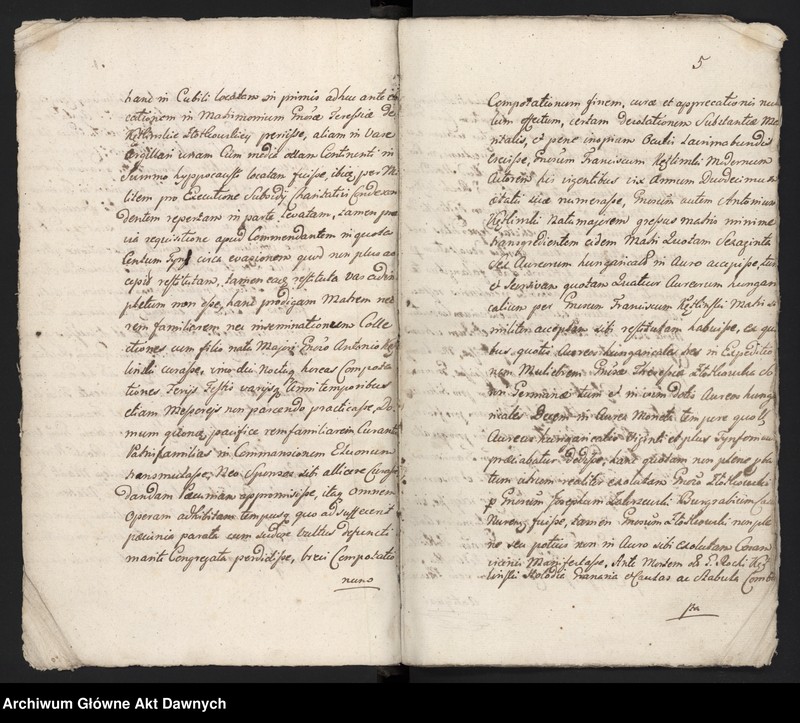 hanc in Cubili locatam in primis adhuc ante
cationem in Matrimonium Gnosæ Teressiæ de
Kęslinskie Złotkowskiey periisse, aliam in Vase
Argillari unam Cum media ollam Continenti in
Summo hyppocausto locatam fuisse, ibiq per Mi
litem pro Executione Subsidij Charitativi
dentem repertam in parte levatam, tamen præ
via requisitione apud Commendantem in quota
Centum circa evasionem quod non plus ac
cepit restitutam, tamen eaq restituta vas
pletum non esse, hanc prodigam Matrem nec
rem familiarem nec inseminationem Colle
ctiones cum filio natu Majori Gnoso Antonio
linski curasse, imo diu Noctuq horeas Computa
tiones Ferijs Festis varijsq Anni temporibus
etiam Messoreis non parcendo practicasse, Do
mum pacifice rem familiarem Curant
Patrisfamilias in Commansionem
transmutasse, Deo Sponsos sibi allicere
dandam Pecuniam appromisisse, itaq omnem
Operam adhibitam tempusq quo ad sufficient
pecunia parata cum sudore vultus defuncti
mariti Congregata perdidisse, brevi Compotatio
num
5
Compotationum finem, curæ et apprecationis nul
lum effectum, certam devotationem Substantiæ
ritalis, et pene inopiam Oculis Lacrimabundis
Gnosum Franciscum Kęslinski Modernum
Actorem his vigentibus vix Annum Duodecimum
ætatis suæ numerasse, Gnosum autem Antonium
Kęslinski Natu majorem gressus matris minime
transgredientem eidem Matri Quotam Sexaginta
Sex Aureorum hungaricalium in Auro accepisse,
et Servivam quotam Quatuor Aureorum hungari
calium per Gnosum Franciscum Kęslinski Matri si
militer acceptam sibi restitutam habuisse, ex qui
bus quotis Aureos hungaricales tres in Expeditio
nem Muliebrem Gnosæ Theressiæ Złotkowska
Germanæ tum et in vim Dotis Aureos hung
ricales Decem in Aurea Moneta tempore quo
Aureus hungaricalis Viginti et plus Tynfonum
præciabatur Dedisse, hanc quotam non plene
tum realiter exolutam Gnoso Złotkowski
p Gnosum Josephum Zakrzewski Burgrabium
Nurens fuisse, tamen Gnosum Złotkowski non ple
ne seu potius non in Auro sibi exolutam Coram
vicinis Manifestasse, Ante Mortem olim G. Rochi Kęs
linski Stolodie Granaria et Caulas ac Stabula Comb
sta
Archiwum Główne Akt Dawnych